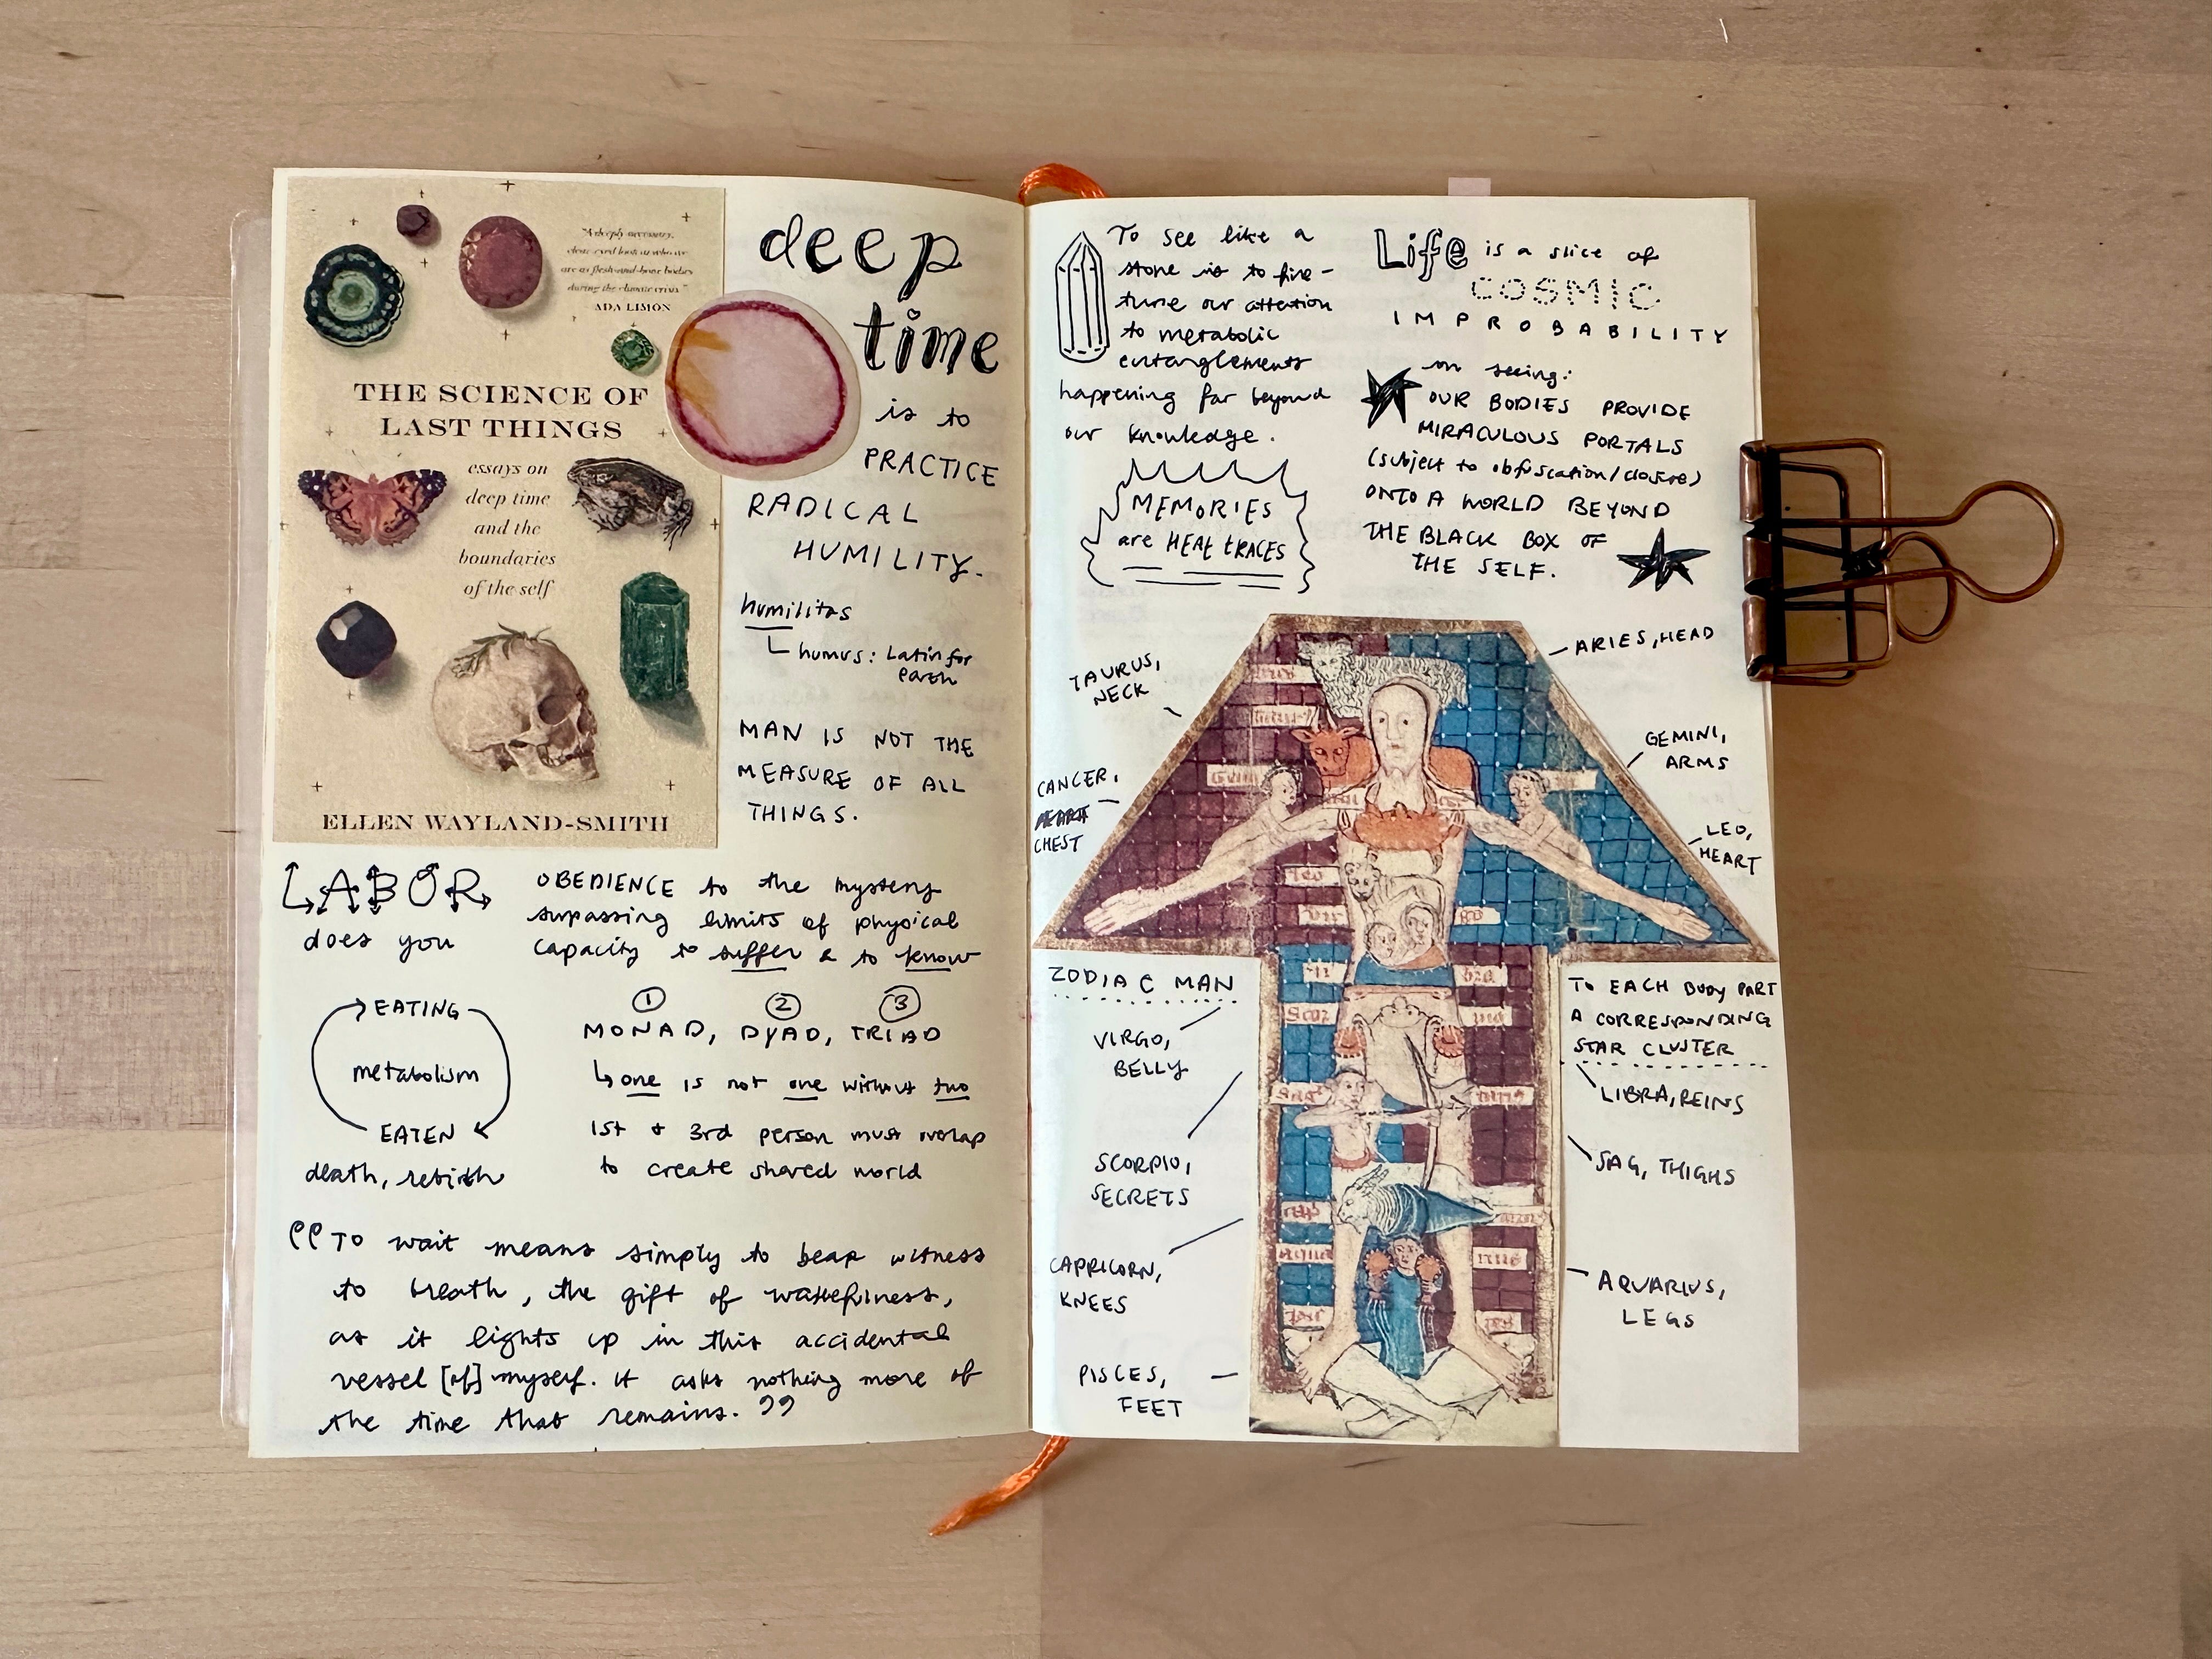 "A deeply necessary,
clear-eyed look at who we
are as flesh-and-bone bodies
during the climate crisis."
ADA LIMÓN
THE SCIENCE OF
LAST THINGS
essays on
deep time
and the
boundaries
of the self
ELLEN WAYLAND-SMITH
deep
time
is to
PRACTICE
RADICAL
HUMILITY.
humilitas
humus: Latin for
earth
MAN IS NOT THE
MEASURE OF ALL
THINGS.
LABOR
does you
OBEDIENCE to the mystery
surpassing limits of physical
capacity to suffer & to know
EATING
metabolism
EATEN
death, rebirth
① ② ③
MONAD, DYAD, TRIAD
↳ one is not one without two
1st & 3rd person must overlap
to create shared world
"To wait means simply to bear witness
to breath, the gift of wakefulness,
as it lights up in this accidental
vessel [of] myself. It asks nothing more of
the time that remains."
To see like a
stone is to fine-
tune our attention
to metabolic
entanglements
happening far beyond
our knowledge.
MEMORIES
are HEAT tRACES
Life is a slice of
COSMIC
IMPROBABILITY
on seeing:
OUR BODIES PROVIDE
MIRACULOUS PORTALS
(subject to obfuscation/closure)
ONTO A WORLD BEYOND
THE BLACK BOX OF
THE SELF.
ARIES, HEAD
TAURUS,
NECK
GEMINI,
ARMS
CANCER,
CHEST
LEO,
HEART
ZODIAC MAN
TO EACH BODY PART
A CORRESPONDING
STAR CLUSTER
VIRGO,
BELLY
LIBRA, REINS
SCORPIO,
SECRETS
SAG, THIGHS
CAPRICORN,
KNEES
AQUARIUS,
LEGS
PISCES,
FEET